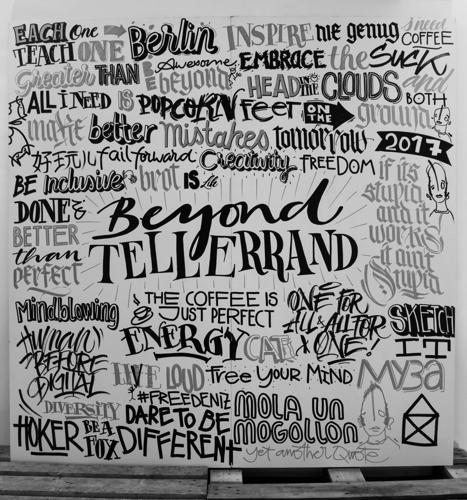 EACH One TEACH ONE → Berlin INSPIRE me genug i need COFFEE
Greater THAN beyond Awesome EMBRACE the SUCK
ALL I NEED IS POPCORN HEAD IN THE CLOUDS and BOTH
feet ON THE ground
make better mistakes tomorrow 2017
好玩儿 fail forward Creativity FREEDOM
BE inclusive brot IS
if its stupid and it works it aint Stupid
DONE IS BETTER than perfect
Beyond
TELLERRAND
Mindblowing
THE COFFEE IS JUST PERFECT
ONE FOR ALL & ALL FOR ONE!
SKETCH IT
HUMAN BEFORE DIGITAL
ENERGY
LIVE LOUD
Free YOUR MIND
#FREEDENIZ
DIVERSITY
HOKER BE A FOX
DARE TO BE DIFFERENT
MOLA UN MOGOLLON
yet another Quote